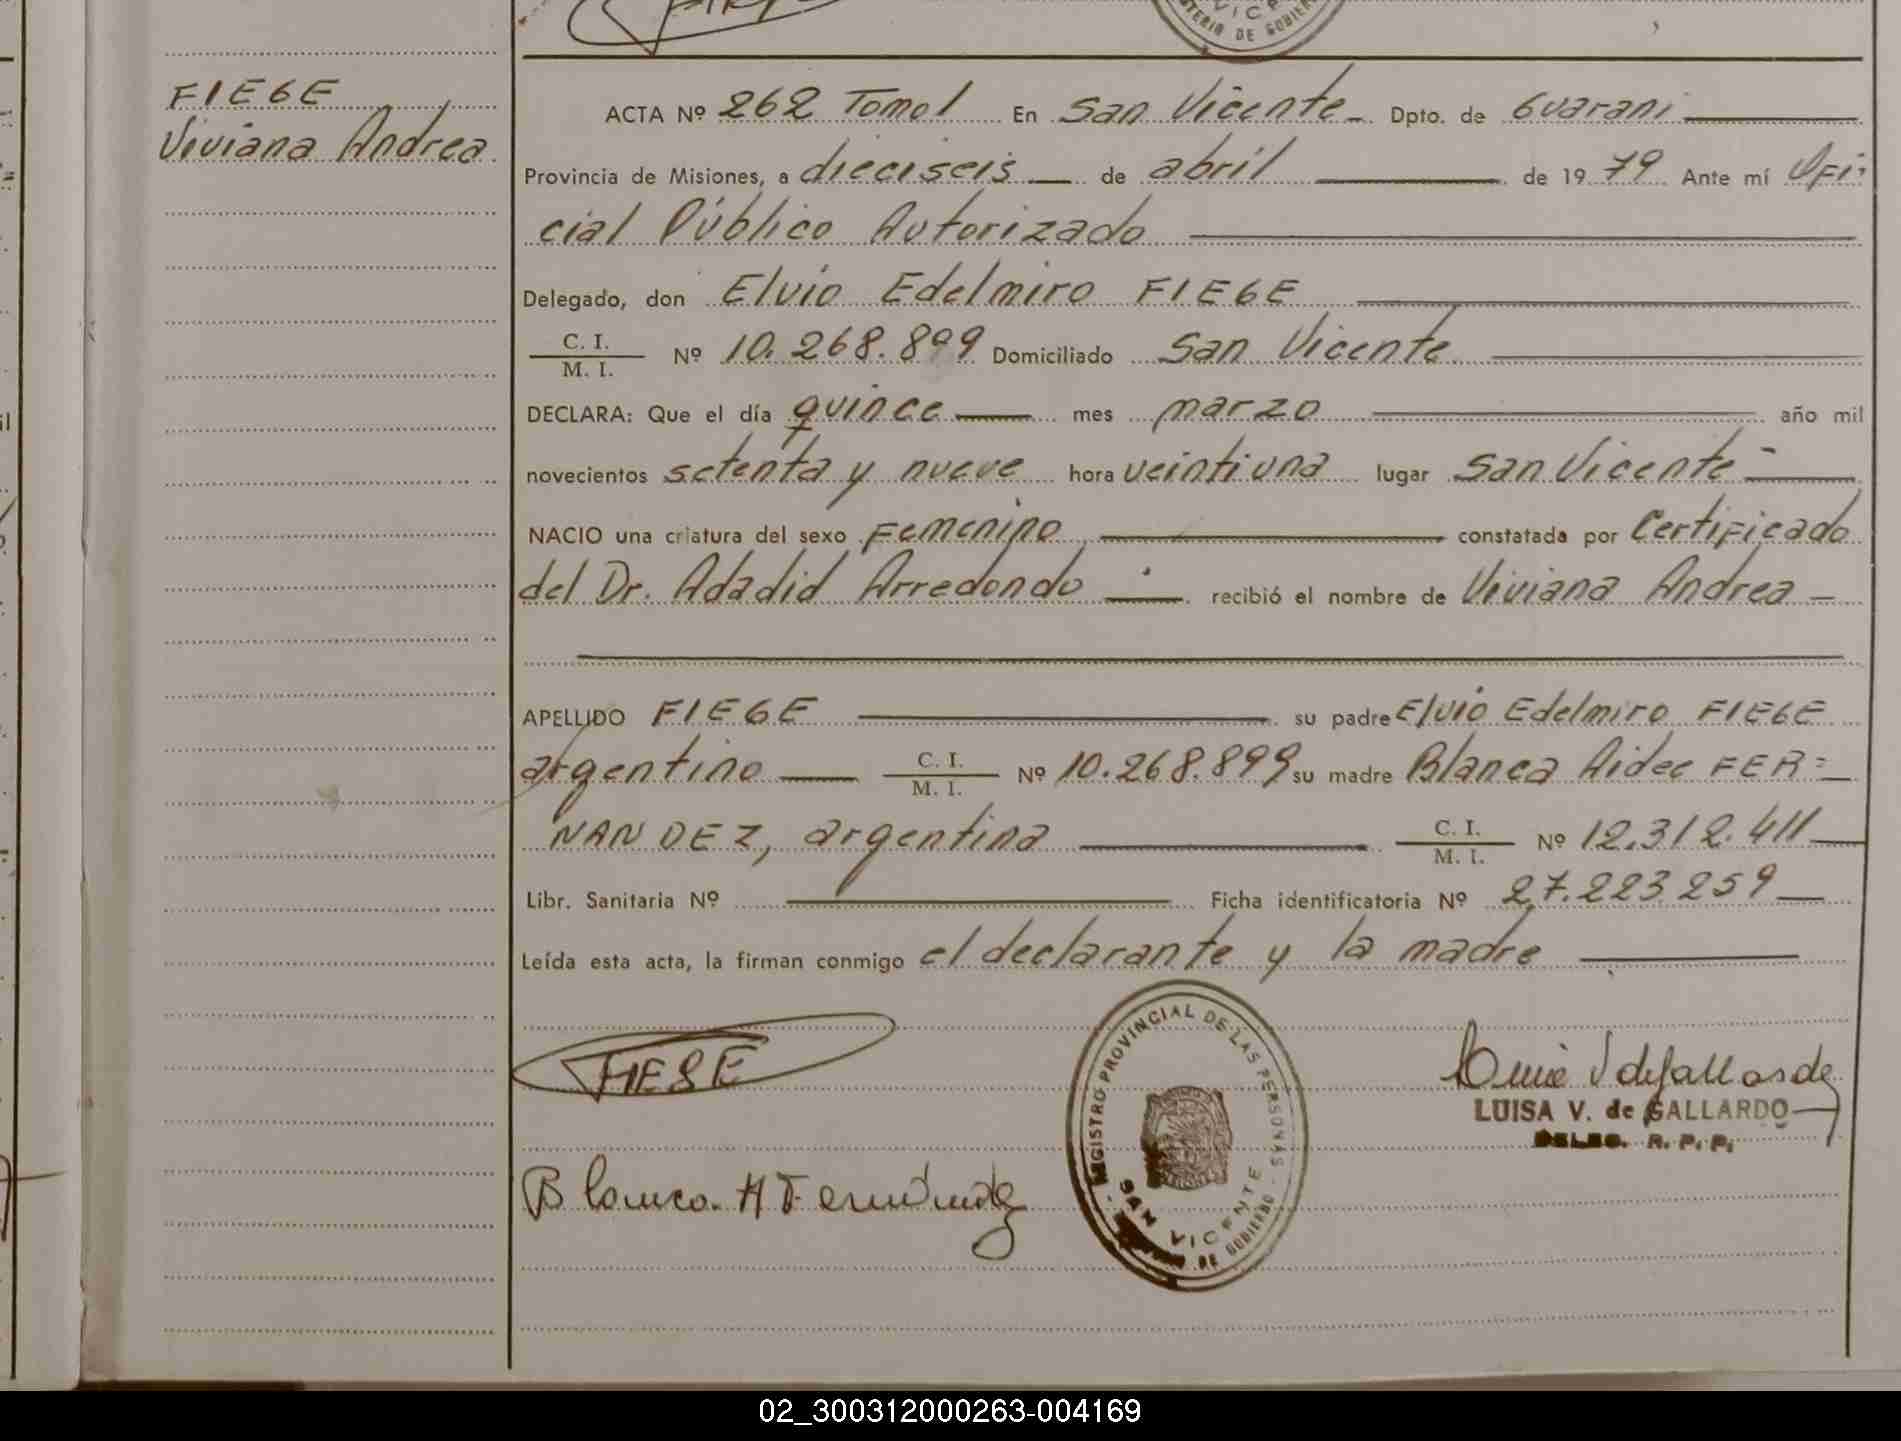 VICE
TERIO DE GOBIER
FIEGE
Viviana Andrea
ACTA Nº 262 Tomo I En San Vicente Dpto. de Guaraní
Provincia de Misiones, a dieciseis de abril de 1979 Ante mí Ofi-
cial Público Autorizado
Delegado, don Elvio Edelmiro FIEGE
C. I.
M. I. Nº 10.268.899 Domiciliado San Vicente
DECLARA: Que el día quince mes marzo año mil
novecientos setenta y nueve hora veintiuna lugar San Vicente
NACIO una criatura del sexo Femenino constatada por Certificado
del Dr. Adadid Arredondo recibió el nombre de Viviana Andrea
APELLIDO FIEGE su padre Elvio Edelmiro FIEGE
argentino C. I. M. I. Nº 10.268.899 su madre Blanca Aidee FER=
NANDEZ, argentina C. I. M. I. Nº 12.312.411
Libr. Sanitaria Nº Ficha identificatoria Nº 27.223.259
Leída esta acta, la firman conmigo el declarante y la madre
FIEGE
REGISTRO PROVINCIAL DE LAS PERSONAS
SAN VICENTE
DE GOBIERNO
LUISA V. de GALLARDO
DELEG. R. P. P.
Blanca H Fernández
02_300312000263-004169